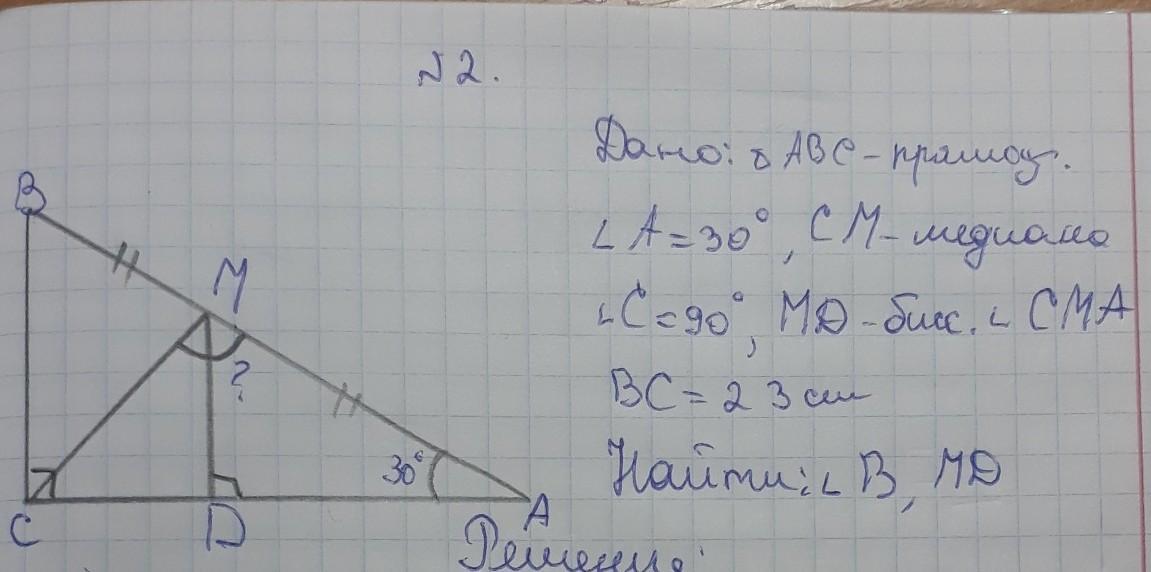 №2.
Дано: △ABC-прямоуг.
∠A=30°, CM-медиана
∠C=90°, MD-бисс. ∠CMA
BC=23 см
Найти: ∠B, MD
B
M
?
30°
C
D
A
Решение: